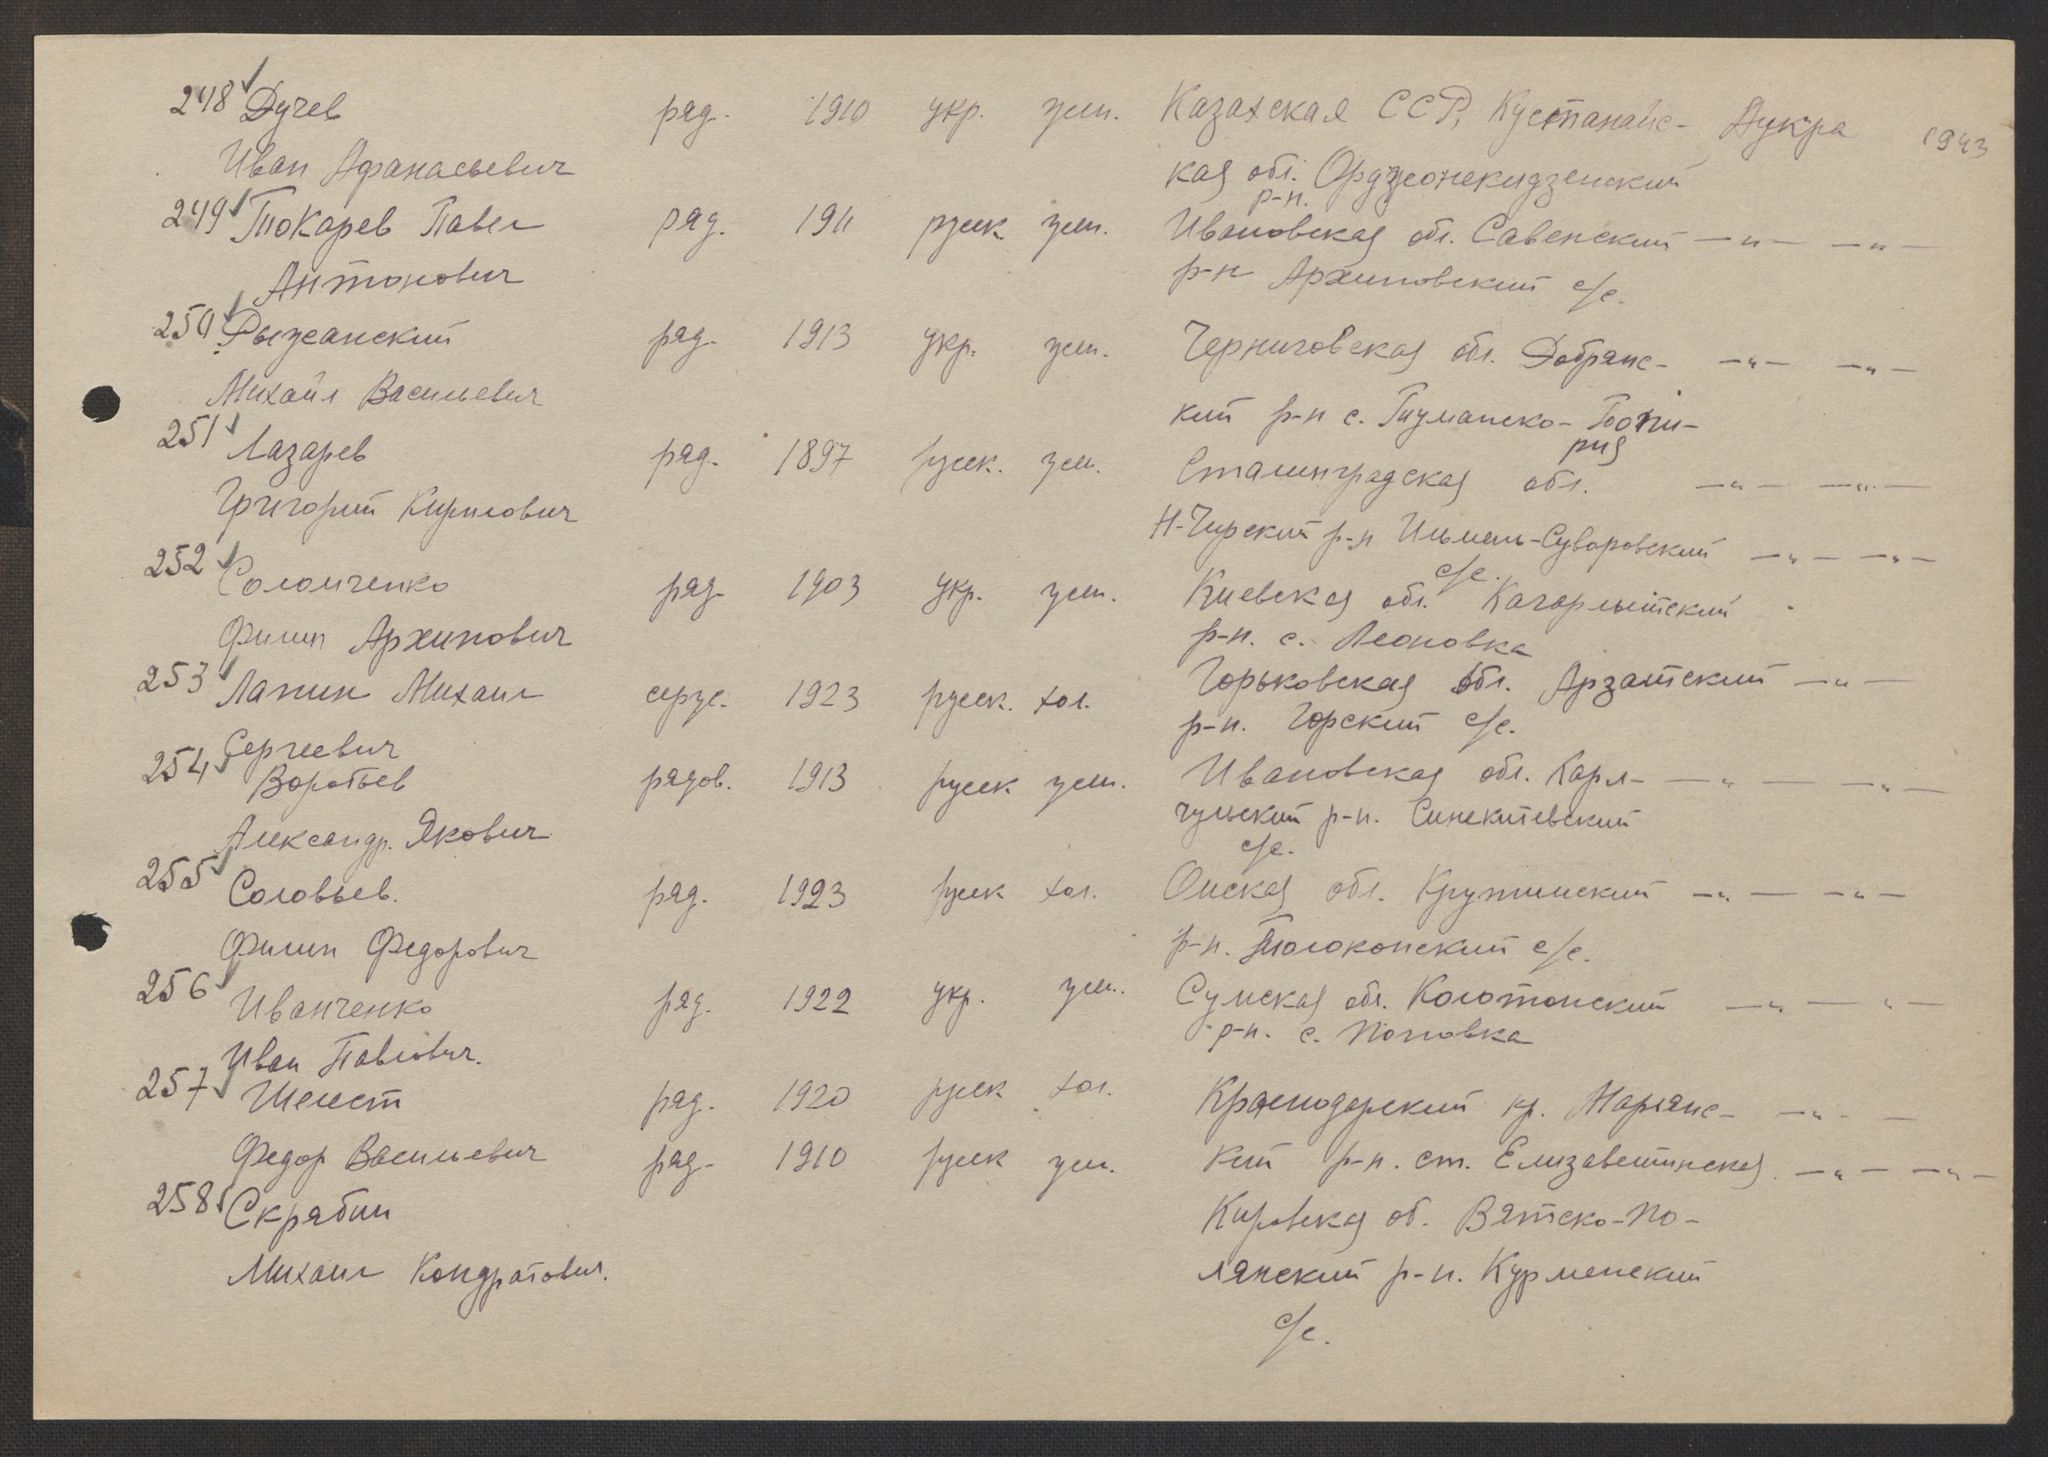 248 Дучев ряд. 1910 укр. жен. Казахская ССР, Кустанайс- Аукра 1943
Иван Афанасьевич кая обл. Орджонекидзенский
р-н.
249 Токарев Павел ряд. 1911 русск жен. Ивановская обл. Савенский —"— —"—
Антонович р-н Архиповский с/с.
250 Рыжанский ряд. 1913 укр. жен. Черниговская обл. Добрянс- —"— —"—
Михайл Васильевич кий р-н с.
251 Лазарев ряд. 1897 русск. жен. Сталинградская обл. —"— —"—
Григорий Кирилович Н-Чирский р-н Ильмень-Суворовский —"— —"—
с/с.
252 Соломченко ряд. 1903 укр. жен. Киевская обл. Кагарлытский
Филип Архипович р-н. с. Леоновка
253 Лапин Михаил серж. 1923 русск. хол. Горьковская обл. Арзатский —"—
Сергеевич р-н. Горский с/с.
254 Воробьев рядов. 1913 русск жен. Ивановская обл. Карл- —"— —"—
Александр. Якович р-н. с/с.
255 Соловьев. ряд. 1923 русск хол. Омская обл. Крутинский —"— —"—
Филип Федорович р-н. Толоконский с/с.
256 Иванченко ряд. 1922 укр. жен. Сумская обл. Колотопский —"— "—
Иван Павлович. р-н. с. Поповка
257 Шелест ряд. 1920 русск хол. Краснодарский кр. Марянс- —"— —
Федор Васильевич ряд. 1910 русск жен. кий р-н. ст. Елизаветинская. —"— —"—
258 Скрябин Кировская об. Вятско-по-
Михаил Кондратович. лянский р-н. Курменский
с/с.